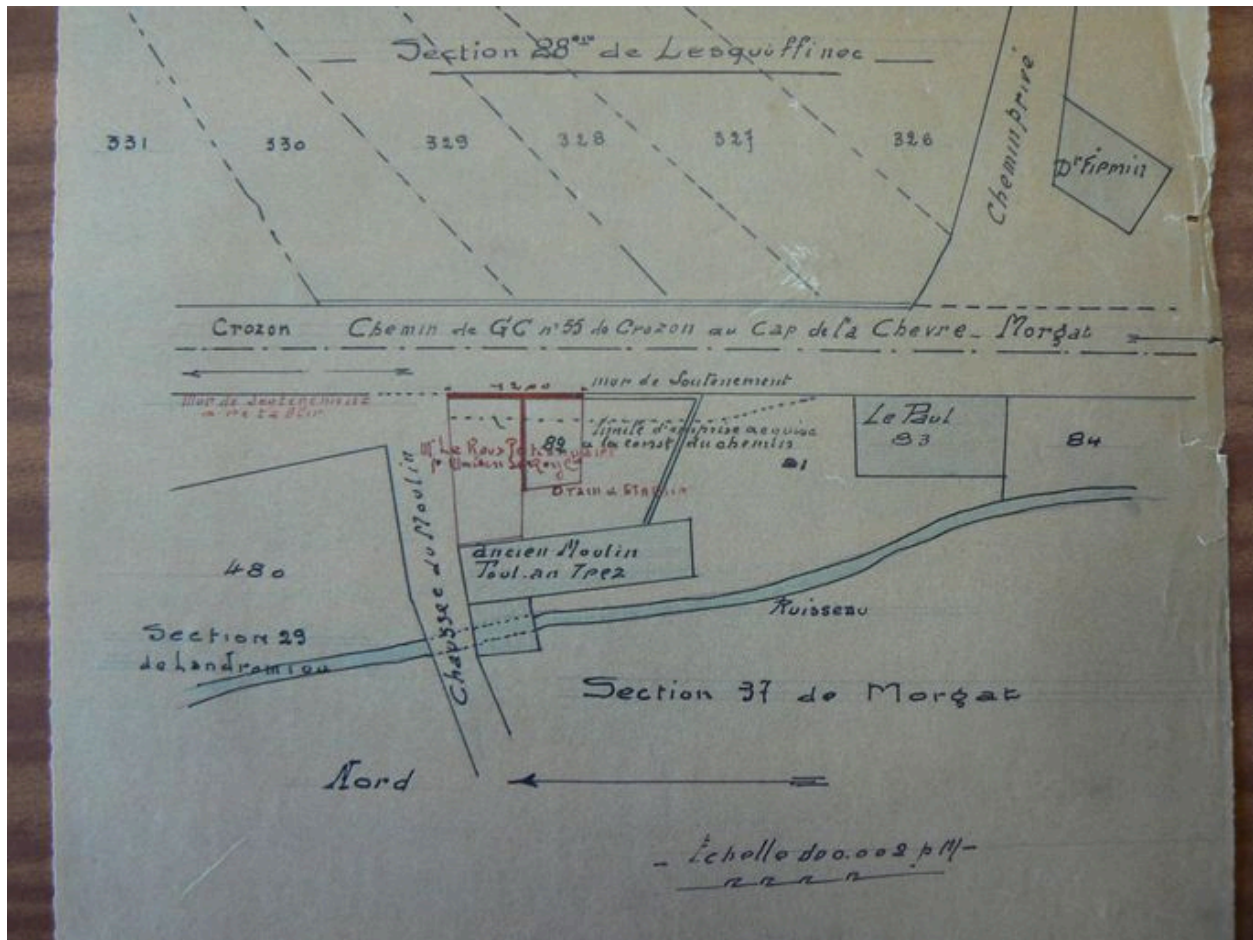 Section 28ème de Lesquiffinec
331 330 329 328 327 326
Chemin privé
Dr Firmin
Crozon Chemin de GC n°55 de Crozon au Cap de la Chevre - Morgat
12,00
mur de Soutenement
Mur de Soutenement
a retablir
limite d'emprise acquise
a la const. du chemin
82
81
Le Paul
83
84
Mr Le Roux
Drain a Etablir
Chaussée du Moulin
Ancien Moulin
Poul.an Trez
480
Ruisseau
Section 29
de Landromiou
Section 37 de Morgat
Nord
- Echelle de 0.002 p M -